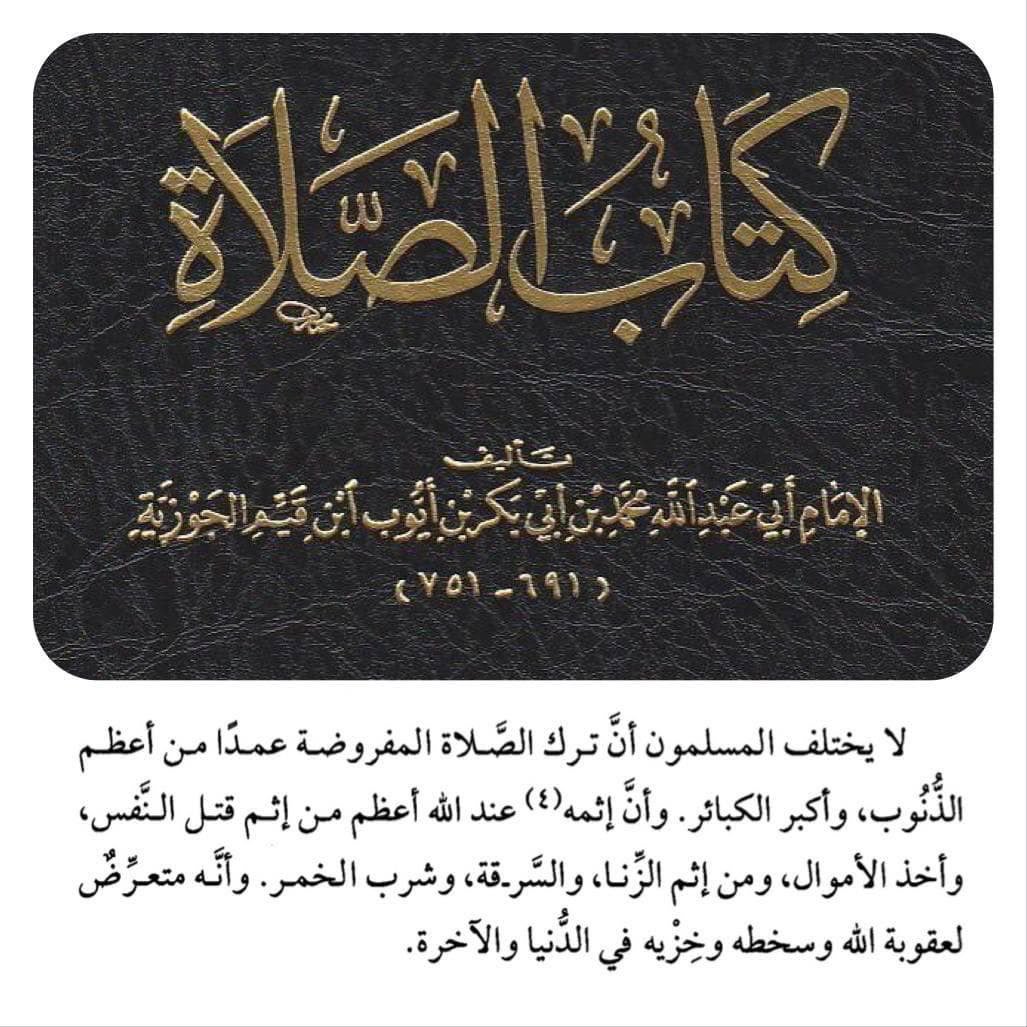 كِتَابُ الصَّلَاةِ
تأليف
الإِمَامِ أَبِي عَبْدِ اللَّهِ مُحَمَّدِ بْنِ أَبِي بَكْرِ بْنِ أَيُّوب ابْنِ قَيِّمِ الجَوْزِيَّةِ
(٦٩١ - ٧٥١)
لا يختلف المسلمون أنَّ ترك الصَّلاة المفروضة عمدًا من أعظم
الذُّنُوب، وأكبر الكبائر. وأنَّ إثمه(٤) عند الله أعظم من إثم قتل النَّفس،
وأخذ الأموال، ومن إثم الزِّنا، والسَّرقة، وشرب الخمر. وأنَّه متعرِّضٌ
لعقوبة الله وسخطه وخِزْيه في الدُّنيا والآخرة.